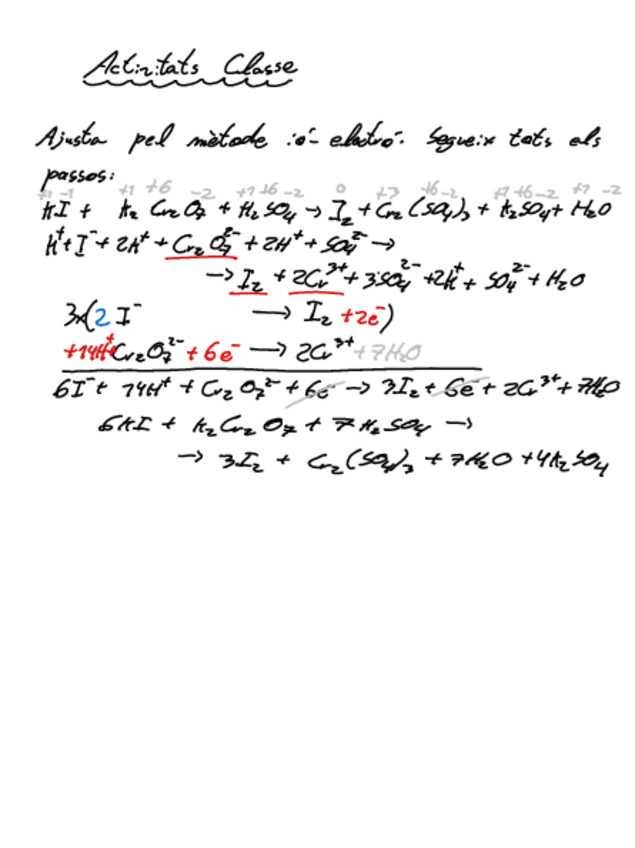 Activitats Classe
Ajusta pel mètode ió-electró. Segueix tots els
passos:
+1 -1 +1 +6 -2 +1 +6 -2 0 +3 +6 -2 +1 +6 -2 +1 -2
KI + K₂Cr₂O₇ + H₂SO₄ → I₂ + Cr₂(SO₄)₃ + K₂SO₄ + H₂O
K⁺ + I⁻ + 2K⁺ + Cr₂O₇²⁻ + 2H⁺ + SO₄²⁻ →
→ I₂ + 2Cr³⁺ + 3SO₄²⁻ + 2K⁺ + SO₄²⁻ + H₂O
3x(2 I⁻ → I₂ + 2e⁻)
+14H⁺ Cr₂O₇²⁻ + 6e⁻ → 2Cr³⁺ + 7H₂O
6I⁻ + 14H⁺ + Cr₂O₇²⁻ + 6e⁻ → 3I₂ + 6e⁻ + 2Cr³⁺ + 7H₂O
6KI + K₂Cr₂O₇ + 7H₂SO₄ →
→ 3I₂ + Cr₂(SO₄)₃ + 7H₂O + 4K₂SO₄